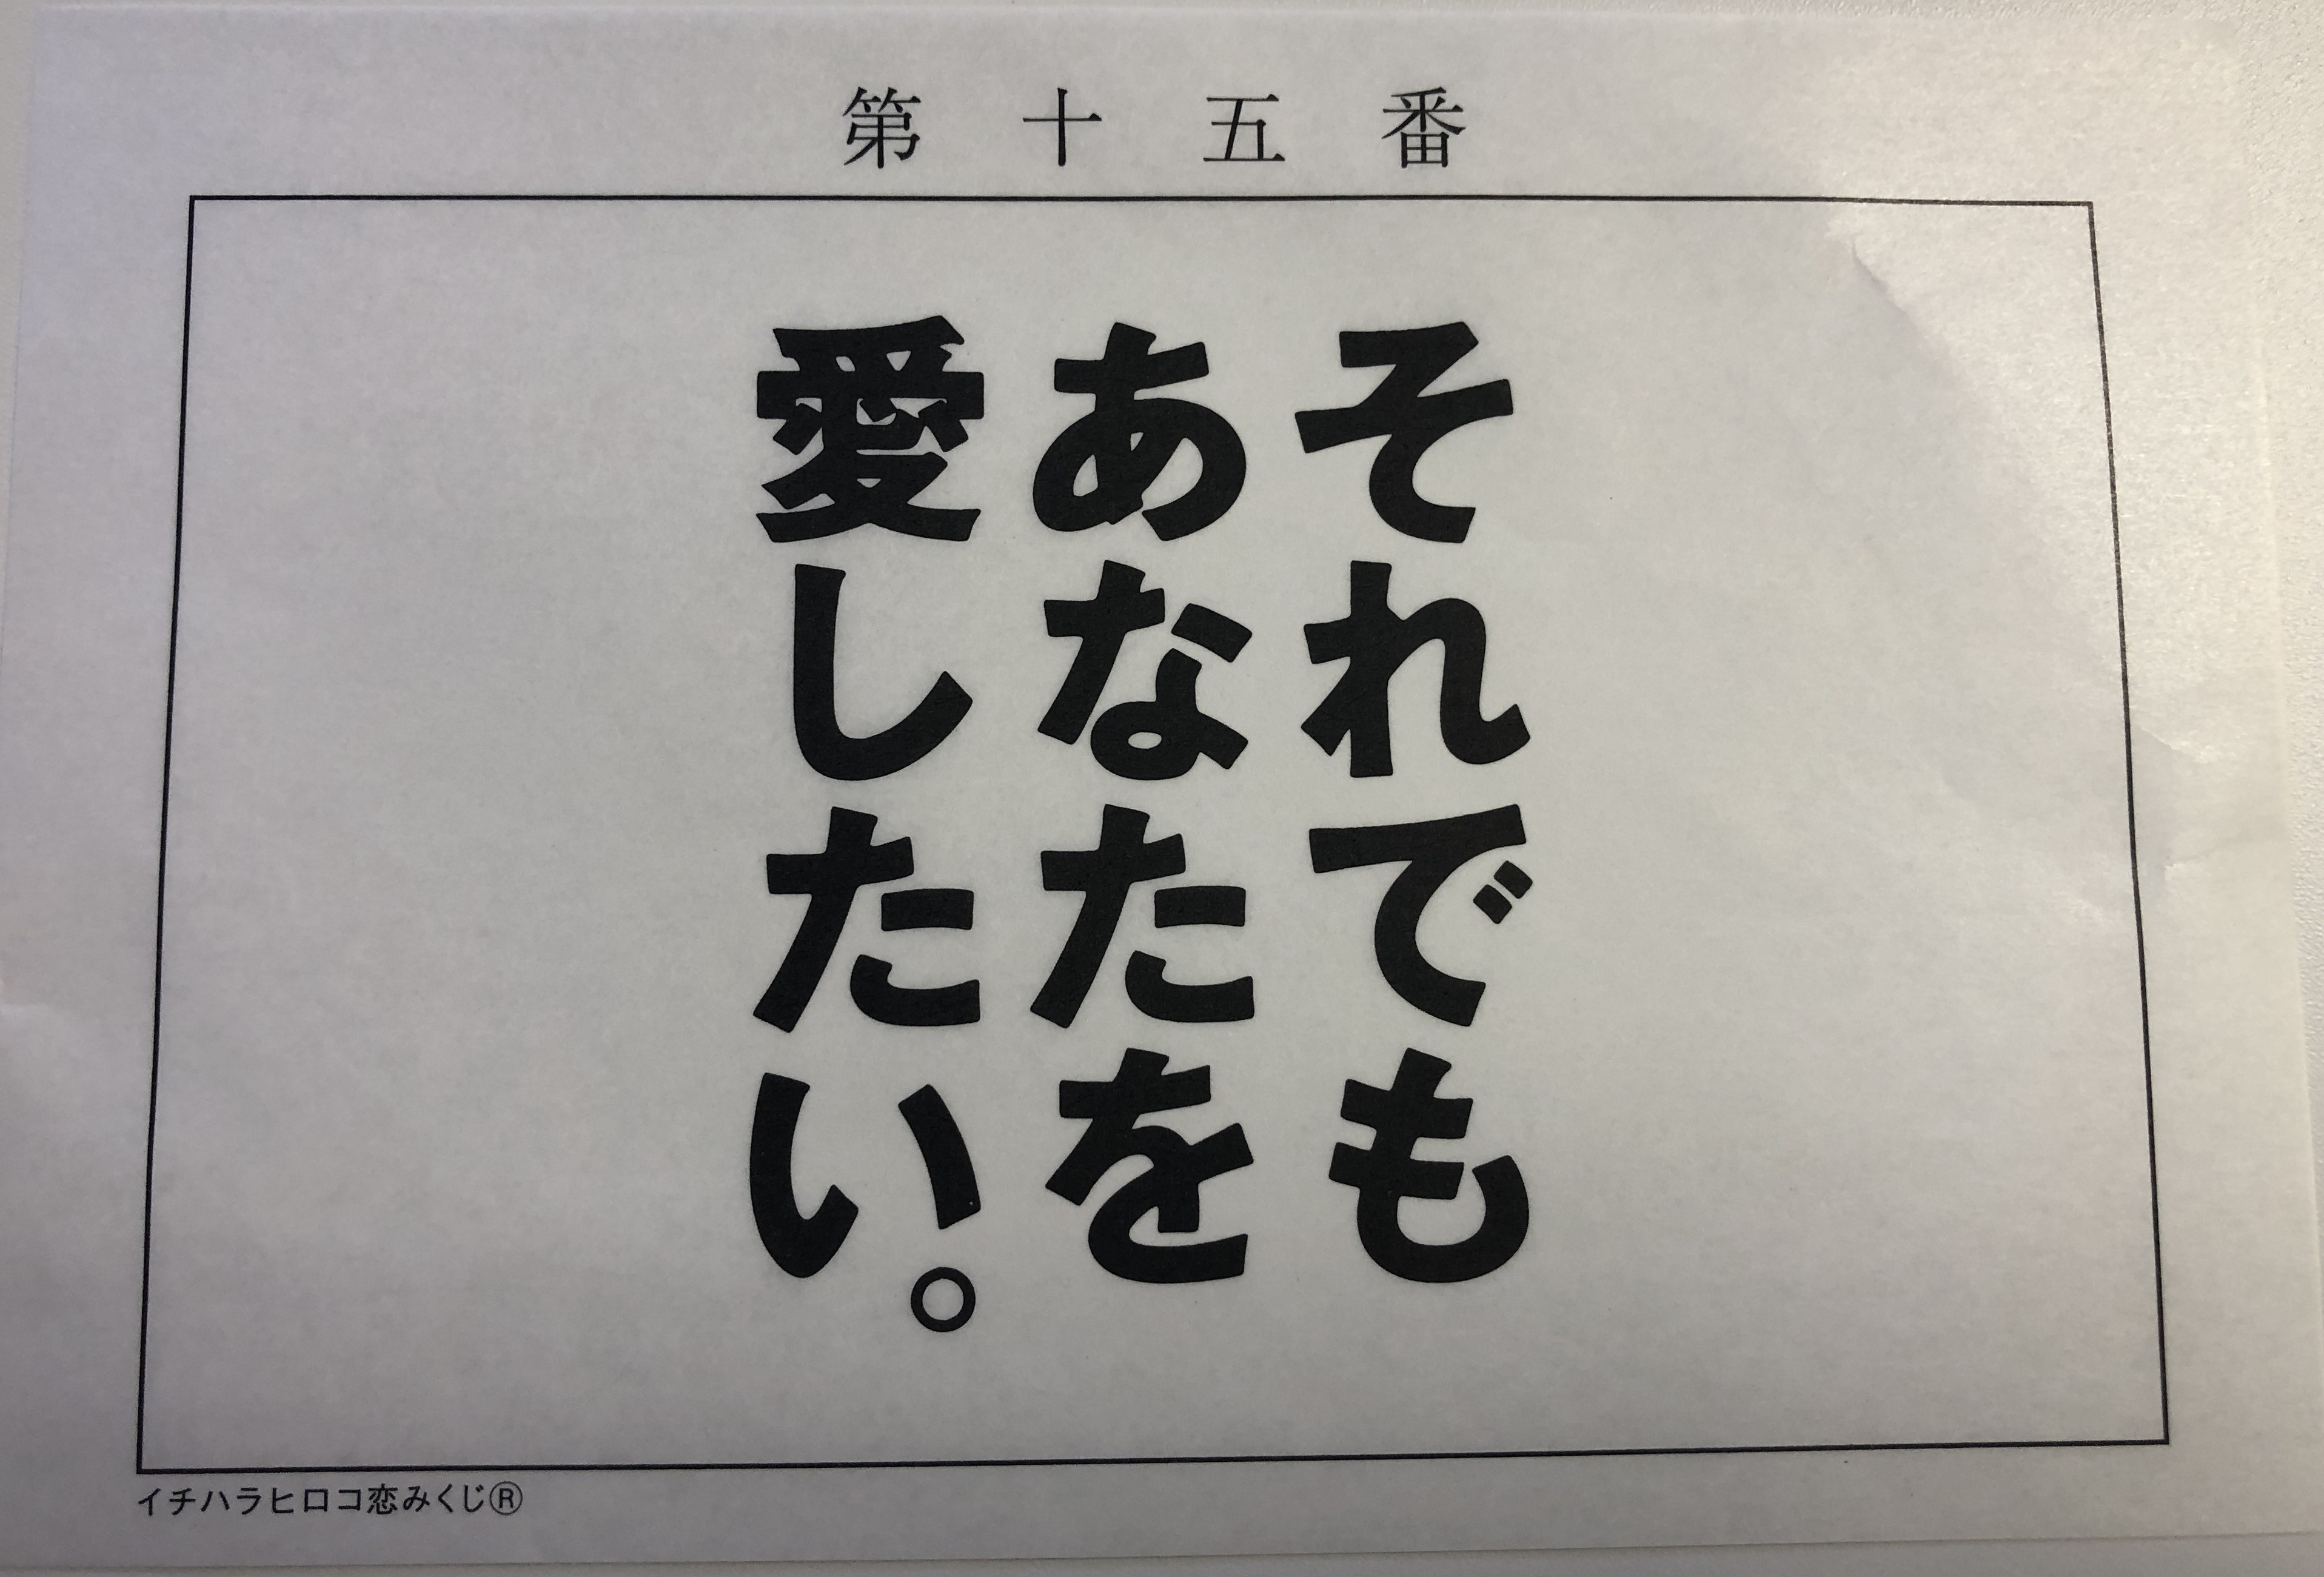 第十五番
それでも
あなたを
愛したい。
イチハラヒロコ恋みくじ®